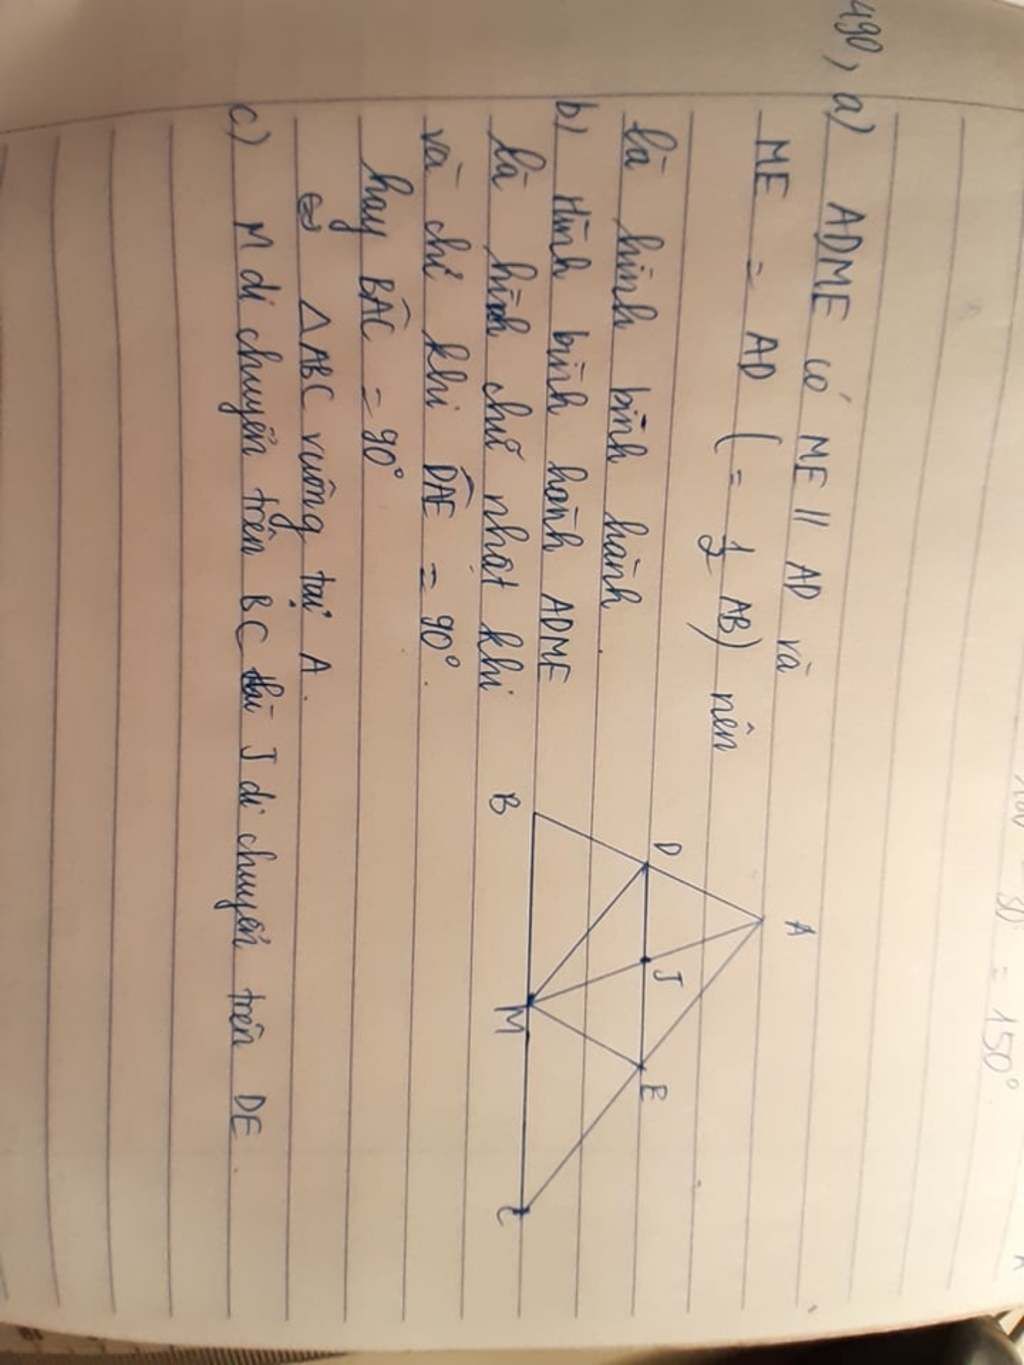 490, a) ADME có ME // AD và
ME = AD ( = 1/2 AB) nên
là hình bình hành.
b) Hình bình hành ADME
là hình chữ nhật khi
và chỉ khi DAE = 90°.
hay BAC = 90°
⇔ △ABC vuông tại A.
c) M di chuyển trên BC thì J di chuyển trên DE.
A
D
J
E
B
M
C
= 150°